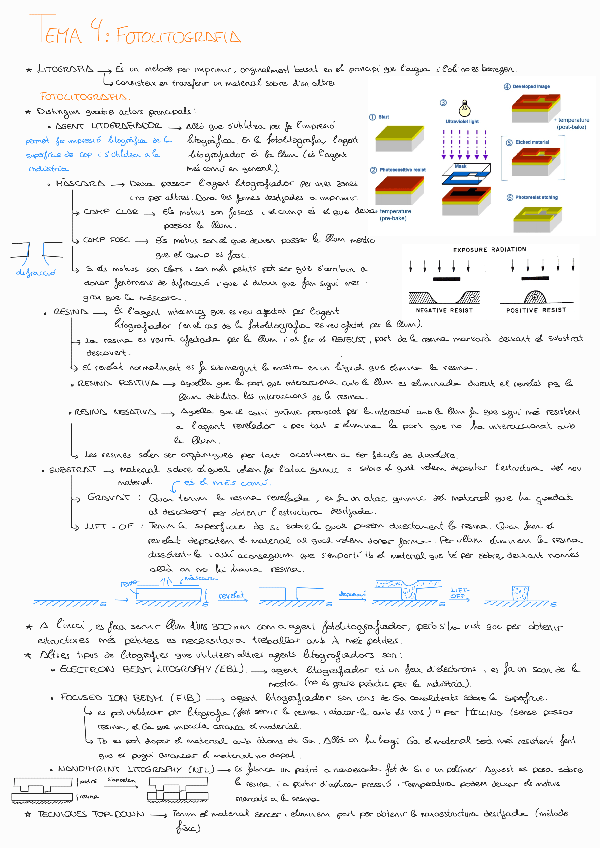 TEMA 4: FOTOLITOGRAFIA
* LITOGRAFIA → És un mètode per imprimir, originalment basat en el principi que l'aigua i l'oli no es barregen.
↳ consisteix en transferir un material sobre d'un altre.
FOTOLITOGRAFIA.
* Distingim quatre actors principals:
• AGENT LITOGRAFIADOR → Allò que s'utilitza per fer l'impressió
litogràfica. En la fotolitografia, l'agent
litografiador és la llum (és l'agent
més comú en general).
permet fer impressió litogràfica de la
superfície de cop i s'utilitza a la
indústria
• MÀSCARA → Deixa passar l'agent litografiador per unes zones
i no per altres. Dona les formes desitjades a imprimir.
→ CAMP CLAR → Els motius són foscos i el camp és el que deixa
passar la llum.
→ CAMP FOSC → Els motius són el que deixen passar la llum mentre
que el camp és fosc
difracció
→ Si els motius són clars i són molt petits pot ser que s'arribin a
donar fenòmens de difracció i que el dibuix que fem sigui més
gran que la màscara.
• RESINA → És l'agent intermig que es veu afectat per l'agent
litografiador (en el cas de la fotolitografia es veu afectat per la llum).
→ La resina es veurà afectada per la llum i al fer el REVELAT, part de la resina marxarà deixant el substrat
descobert.
↳ El revelat normalment es fa submergint la mostra en un líquid que elimina la resina.
• RESINA POSITIVA → Aquella que la part que interacciona amb la llum és eliminada durant el revelat pq la
llum debilita les interaccions de la resina.
• RESINA NEGATIVA → Aquella que el canvi químic provocat per la interacció amb la llum fa que sigui més resistent
a l'agent revelador i per tant s'elimina la part que no ha interaccionat amb
la llum.
↳ Les resines solen ser orgàniques per tant acostumen a ser fàcils de dissoldre.
• SUBSTRAT → material sobre el qual volem fer l'atac químic o sobre el qual volem depositar l'estructura del nou
material.
és el més comú.
→ GRAVAT: Quan tenim la resina revelada, es fa un atac químic del material que ha quedat
al descobert per obtenir l'estructura desitjada.
→ LIFT-OFF: Tenim la superfície de Si sobre la qual posem directament la resina. Quan fem el
revelat depositem el material al qual volem donar forma. Per últim eliminem la resina
dissolent-la i així aconseguim que s'emporti tb el material que té per sobre, deixant només
allà on no hi havia resina.
resina
màscara
revelat
deposició
LIFT-OFF
* A l'inici, es feia servir llum fins 300 nm com a agent fotolitografiador, però s'ha vist que per obtenir
estructures més petites és necessitava treballar amb λ més petites.
* Altres tipus de litografies que utilitzen altres agents litografiadors són:
• ELECTRON BEAM LITOGRAPHY (EBL). → agent litografiador és un feix d'electrons i es fa un scan de la
mostra (no és gaire pràctic per la indústria).
• FOCUSED ION BEAM (FIB) → agent litografiador són ions de Ga canalitzats sobre la superfície.
↳ es pot utilitzar per litografia (fent servir la resina i atacar-la amb els ions) o per MILLING (sense passar
resina, el Ga que impacta arranca el material.
↳ Tb es pot dopar el material amb àtoms de Ga. Allà on hi hagi Ga el material serà més resistent fent
que es pugui arrancar el material no dopat
• NANOIMPRINT LITOGRAPHY (NIL) → Es fabrica un patró a nanoescala fet de Si o un polímer. Aquest es posa sobre
la resina i a partir d'aplicar pressió i temperatura podem deixar els motius
marcats a la resina.
patró
resina
* TÈCNIQUES TOP DOWN → Tenim el material sencer i eliminem part per obtenir la nanoestructura desitjada (mètode
físic)
① Start
② Photosensitive resist
+ temperature
(pre-bake)
③
Ultraviolet light
Mask
④ Developed image
+ temperature
(post-bake)
⑤ Etched material
⑥ Photoresist etching
EXPOSURE RADIATION
NEGATIVE RESIST
POSITIVE RESIST